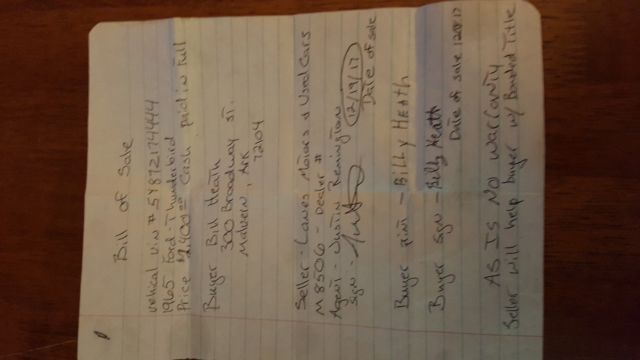 Bill of Sale
vehical Vin # 5Y87Z174444
1965 Ford - Thunderbird
Price $2,400.00 Cash paid in full
Buyer Bill Heath
300 Broadway ST.
Malvern, Ark
72104
Seller - Lawes Motors & Used Cars
M8506 - Dealer #
Agent - Justin Remington
Sign - 12/19/17
Date of sale
Buyer print - Billy Heath
Buyer sign - Billy Heath
Date of sale
AS IS NO warranty
Seller will help buyer w/ Bonded Title